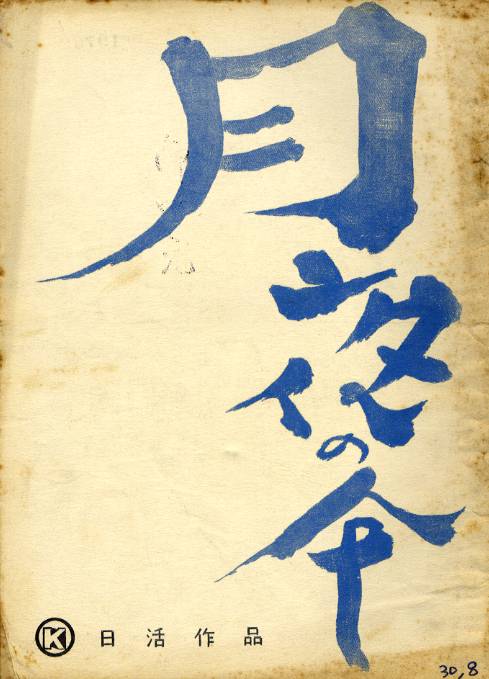 月夜の仐
K 日活作品
30,8